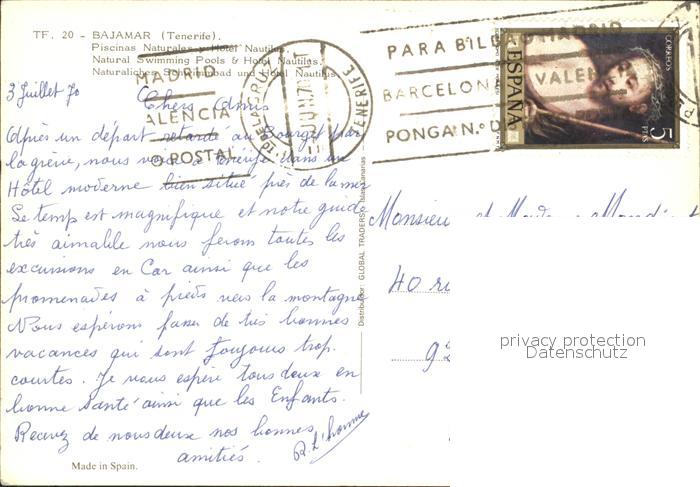 TF. 20 - BAJAMAR (Tenerife).
Piscinas Naturales y Hotel Nautilus.
Natural Swimming Pools & Hotel Nautilus.
Naturaliches Schwimmbad und Hotel Nautilus.
3 Juillet 70
Chers Amis
Après un départ retardé au Bourget par
la grève, nous voici à Ténérife dans un
Hôtel moderne bien situé près de la mer
Le temps est magnifique et notre guide
très aimable nous ferons toutes les
excursions en Car ainsi que les
promenades à pieds vers la montagne
Nous espérons passer de très bonnes
vacances qui sont toujours trop
courtes. Je vous espère tous deux en
bonne santé ainsi que les Enfants.
Recevez de nous deux nos bonnes
amitiés.
R. L'homme
Made in Spain.
Distribuidor: GLOBAL TRADERS Islas Canarias
MADRID
VALENCIA
O POSTAL
TENERIFE
PARA BILBAO MADRID
BARCELONA VALENCIA
PONGA N.º D POSTAL
ESPAÑA
CORREOS
5
PTAS
Monsieur et Madame
40
92
privacy protection
Datenschutz